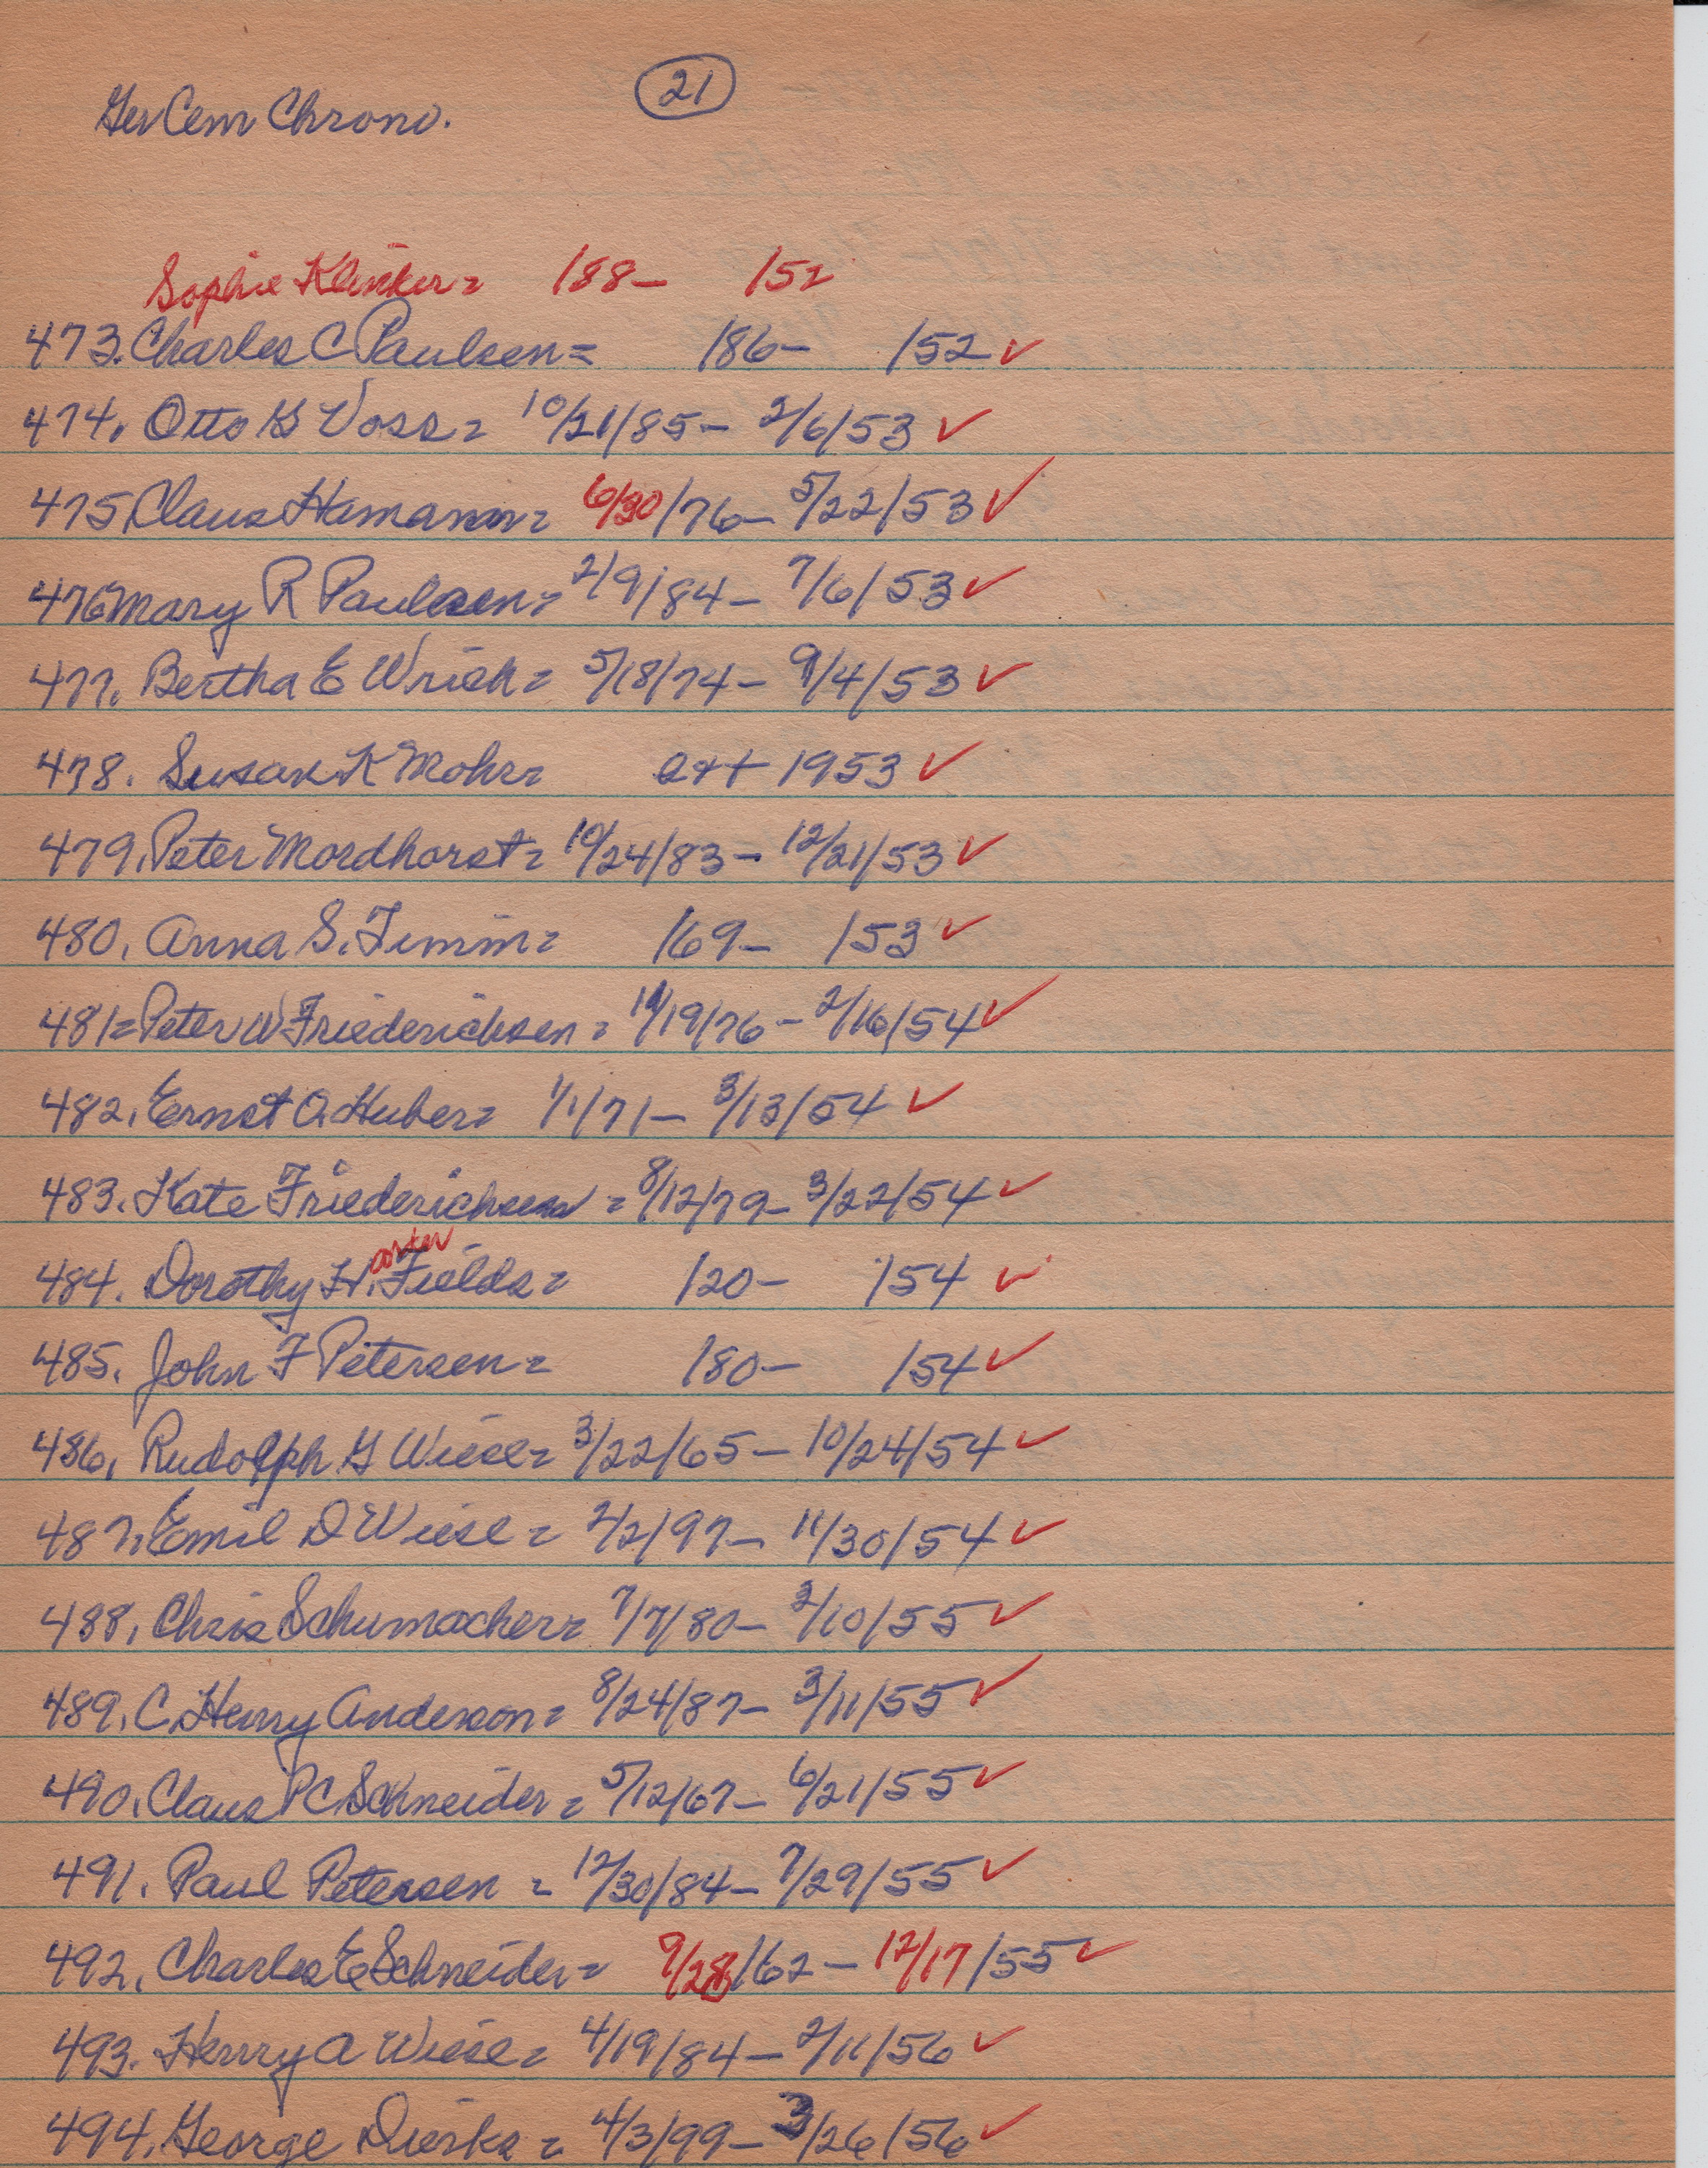 21
Ger Cem Chrono.
Sophie Klinker= /88- /52
473. Charles C Paulsen= /86- /52 ✓
474. Otto G Voss= 10/21/85- 2/6/53 ✓
475 Claus Hamann= 6/30/76- 5/22/53 ✓
476 Mary R Paulsen= 2/9/84- 7/6/53 ✓
477. Bertha E Wriek= 5/18/74- 9/4/53 ✓
478. Susan K Mohr= 1953 ✓
479. Peter Mordhorst= 10/24/83- 12/21/53 ✓
480. Anna S. Timm= /69- /53 ✓
481= Peter W Friederichsen= /19/76- 2/16/54 ✓
482. Ernst A Huber= 1/1/71- 3/13/54 ✓
483. Kate Friederichsen= 8/12/79- 3/22/54 ✓
484. Dorothy H. Fields= /20- /54 ✓
485. John F Petersen= /80- /54 ✓
486. Rudolph G Wiese= 3/22/65- 10/24/54 ✓
487. Emil D Wiese= 2/2/97- 11/30/54 ✓
488. Chris Schumacher= 7/7/80- /10/55 ✓
489. C. Henry Anderson= 8/24/87- 3/11/55 ✓
490. Claus P C Schneider= 5/12/67- 6/21/55 ✓
491. Paul Petersen= 12/30/84- 7/29/55 ✓
492. Charles E Schneider= 9/28/62- 12/17/55 ✓
493. Henry A Wiese= 4/19/84- 2/11/56 ✓
494. George Dierks= 4/3/99- 3/26/56 ✓